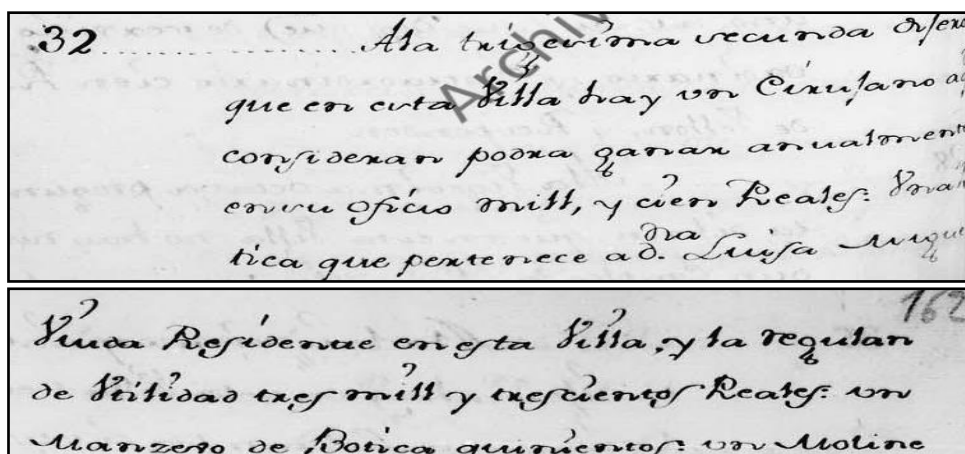 32........... Ala trigesima segunda dixe
que en esta Villa hay un Cirujano a
consideran podra ganar anualmente
en su oficio mill, y cien Reales: Una
tica que pertenece a d.ña Luisa Migue
162
Viuda Residente en esta Villa, y la regulan
de Utilidad tres mill y trescientos Reales: un
Manzevo de Botica quinientos: un Moline
Archiv